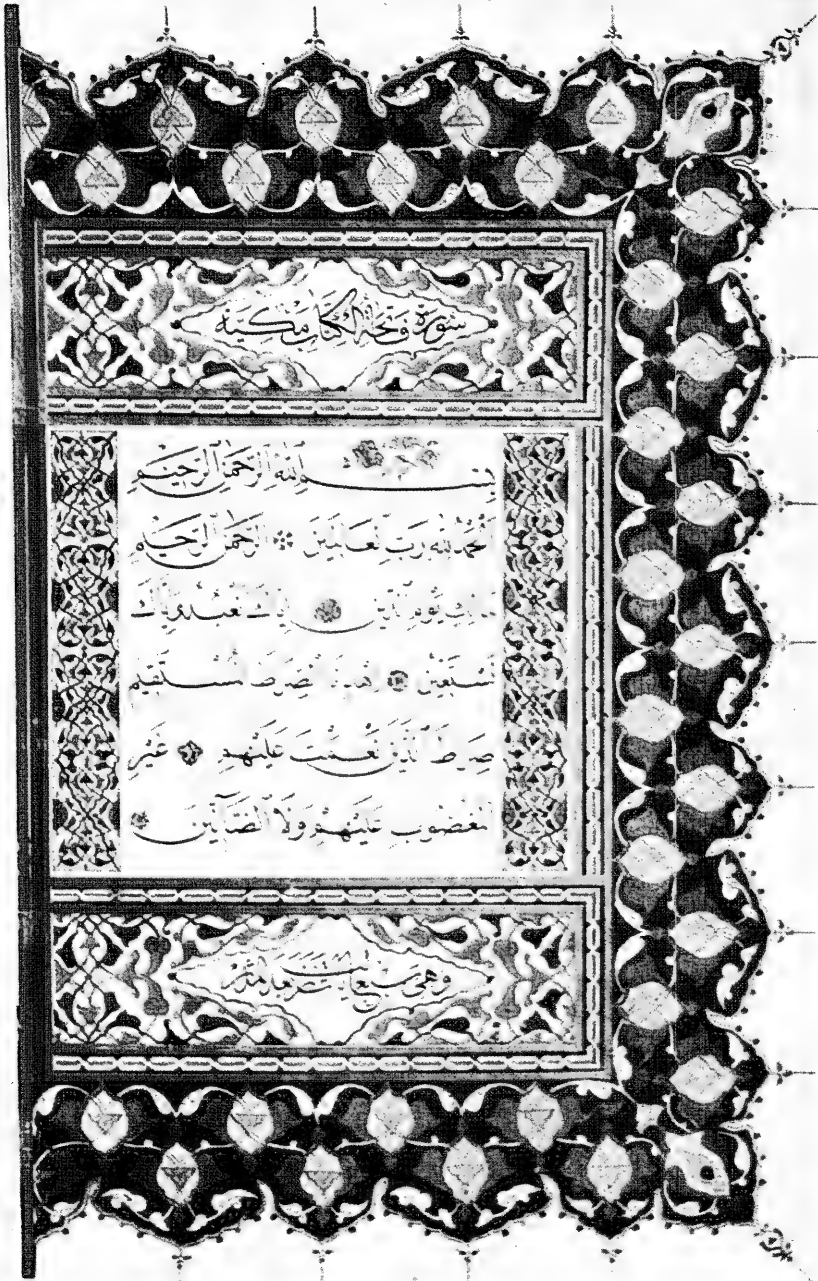 سورة فاتحة الكتاب مكية
بسم الله الرحمن الرحيم
الحمد لله رب العالمين الرحمن الرحيم
مالك يوم الدين إياك نعبد وإياك
نستعين اهدنا الصراط المستقيم
صراط الذين أنعمت عليهم غير
المغضوب عليهم ولا الضالين
وهي سبع آيات نزلت بعد المدثر